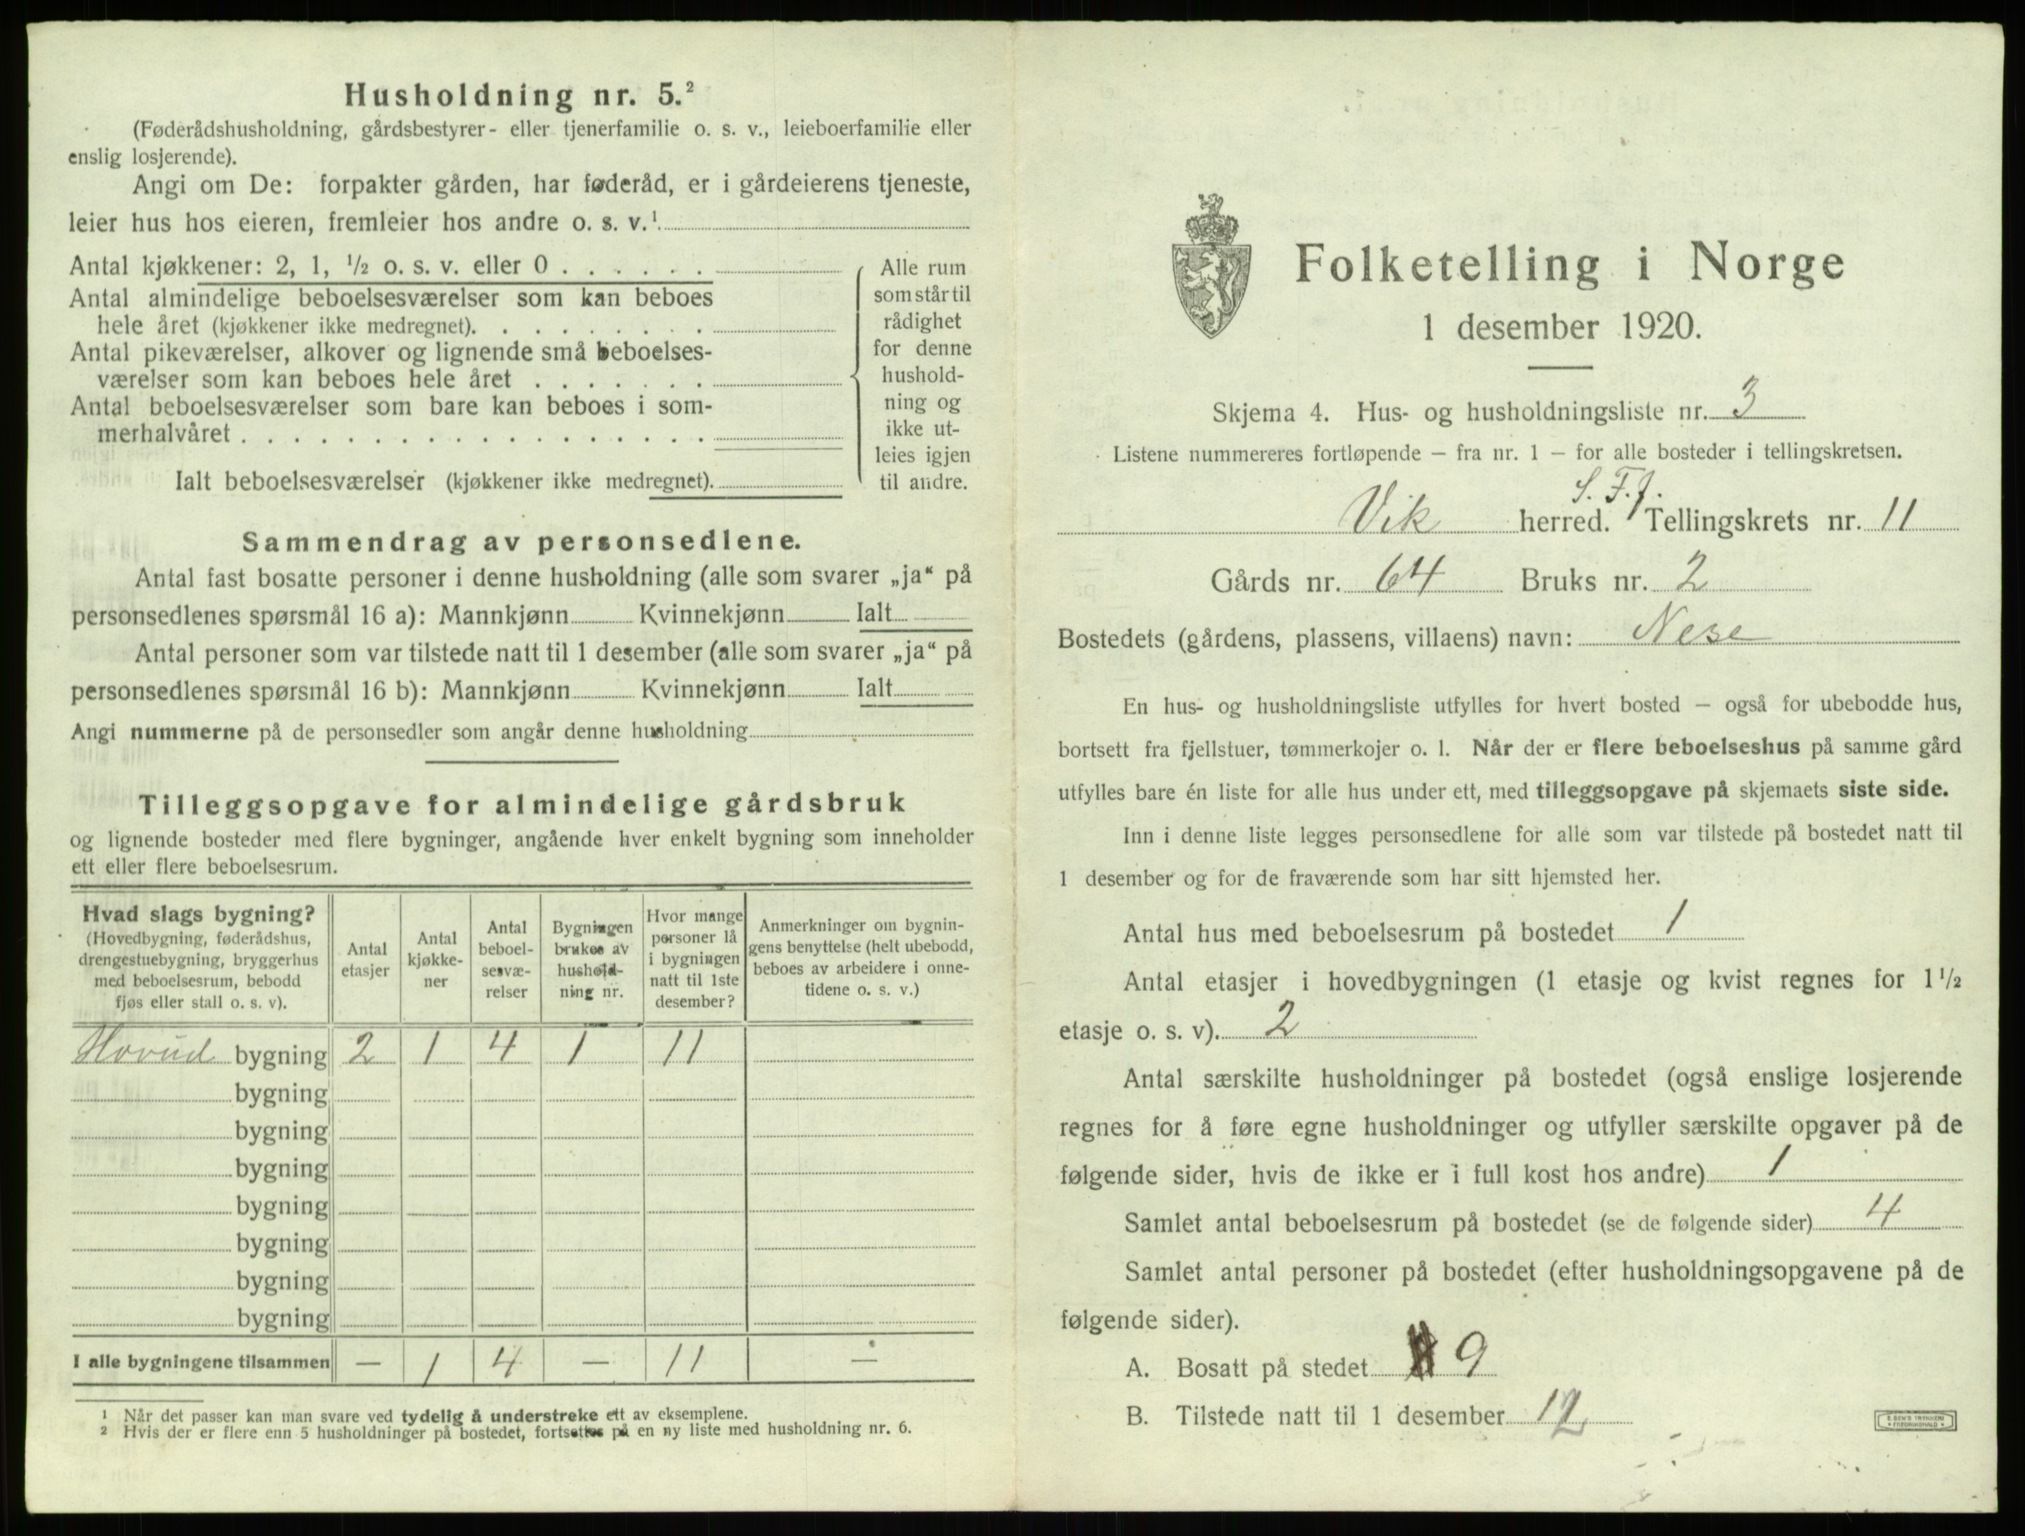 Husholdning nr. 5.²
(Føderådshusholdning, gårdsbestyrer- eller tjenerfamilie o. s. v., leieboerfamilie eller
enslig losjerende).
Angi om De: forpakter gården, har føderåd, er i gårdeierens tjeneste,
leier hus hos eieren, fremleier hos andre o. s. v.¹
Antal kjøkkener: 2, 1, ½ o. s. v. eller 0 . . . . . .
Antal almindelige beboelsesværelser som kan beboes
hele året (kjøkkener ikke medregnet). . . . . . . . .
Antal pikeværelser, alkover og lignende små beboelses-
værelser som kan beboes hele året . . . . . . .
Antal beboelsesværelser som bare kan beboes i som-
merhalvåret . . . . . . . . . . . . . . . . . .
Ialt beboelsesværelser (kjøkkener ikke medregnet).
Alle rum
som står til
rådighet
for denne
hushold-
ning og
ikke ut-
leies igjen
til andre.
Sammendrag av personsedlene.
Antal fast bosatte personer i denne husholdning (alle som svarer „ja“ på
personsedlenes spørsmål 16 a): Mannkjønn Kvinnekjønn Ialt
Antal personer som var tilstede natt til 1 desember (alle som svarer „ja“ på
personsedlenes spørsmål 16 b): Mannkjønn Kvinnekjønn Ialt
Angi nummerne på de personsedler som angår denne husholdning
Tilleggsopgave for almindelige gårdsbruk
og lignende bosteder med flere bygninger, angående hver enkelt bygning som inneholder
ett eller flere beboelsesrum.
Hvad slags bygning?
(Hovedbygning, føderådshus,
drengestuebygning, bryggerhus
med beboelsesrum, bebodd
fjøs eller stall o. s. v).
Antal
etasjer
Antal
kjøkke-
ner
Antal
beboel-
sesvæ-
relser
Bygningen
brukes av
hushold-
ning nr.
Hvor mange
personer lå
i bygningen
natt til 1ste
desember?
Anmerkninger om bygnin-
gens benyttelse (helt ubebodd,
beboes av arbeidere i onne-
tidene o. s. v.)
Hovud bygning 2 1 4 1 11
bygning
bygning
bygning
bygning
bygning
bygning
bygning
I alle bygningene tilsammen — 1 4 — 11 —
¹ Når det passer kan man svare ved tydelig å understreke ett av eksemplene.
² Hvis der er flere enn 5 husholdninger på bostedet, fortsettes på en ny liste med husholdning nr. 6.
Folketelling i Norge
1 desember 1920.
Skjema 4. Hus- og husholdningsliste nr. 3
Listene nummereres fortløpende — fra nr. 1 — for alle bosteder i tellingskretsen.
S. F. J.
Vik herred. Tellingskrets nr. 11
Gårds nr. 64 Bruks nr. 2
Bostedets (gårdens, plassens, villaens) navn: Nese
En hus- og husholdningsliste utfylles for hvert bosted — også for ubebodde hus,
bortsett fra fjellstuer, tømmerkojer o. l. Når der er flere beboelseshus på samme gård
utfylles bare én liste for alle hus under ett, med tilleggsopgave på skjemaets siste side.
Inn i denne liste legges personsedlene for alle som var tilstede på bostedet natt til
1 desember og for de fraværende som har sitt hjemsted her.
Antal hus med beboelsesrum på bostedet 1
Antal etasjer i hovedbygningen (1 etasje og kvist regnes for 1½
etasje o. s. v). 2
Antal særskilte husholdninger på bostedet (også enslige losjerende
regnes for å føre egne husholdninger og utfyller særskilte opgaver på de
følgende sider, hvis de ikke er i full kost hos andre) 1
Samlet antal beboelsesrum på bostedet (se de følgende sider) 4
Samlet antal personer på bostedet (efter husholdningsopgavene på de
følgende sider).
A. Bosatt på stedet 9
B. Tilstede natt til 1 desember 12